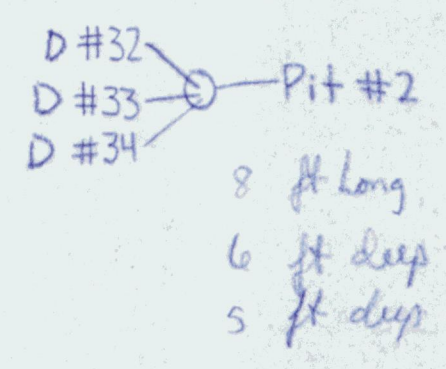 D #32
D #33 Pit #2
D #34
8 ft Long
6 ft deep
5 ft deep